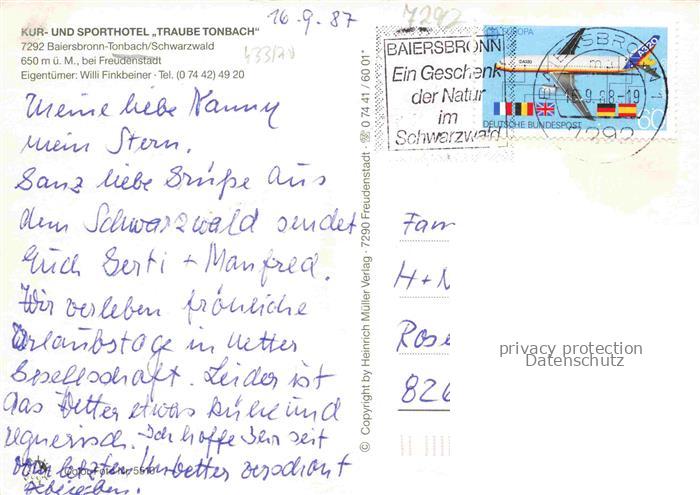 16.9.87
7292
KUR- UND SPORTHOTEL „TRAUBE TONBACH"
7292 Baiersbronn-Tonbach/Schwarzwald
650 m ü. M., bei Freudenstadt
Eigentümer: Willi Finkbeiner · Tel. (0 74 42) 49 20
BAIERSBRONN
Ein Geschenk
der Natur
im
Schwarzwald
EUROPA
A320
DEUTSCHE BUNDESPOST
60
7292
Meine liebe Nanny
mein Stern.
Ganz liebe Grüße aus
dem Schwarzwald sendet
Euch Gerti + Manfred.
Wir verleben fröhliche
Urlaubstage in netter
Gesellschaft. Leider ist
das Wetter etwas kühl und
regnerisch. Ich hoffe Ihr seit
vom letzten Unwetter verschont
geblieben.
© Copyright by Heinrich Müller Verlag · 7290 Freudenstadt · ☏ 0 74 41 / 60 01*
Fam
H+
Rose
826
privacy protection
Datenschutz